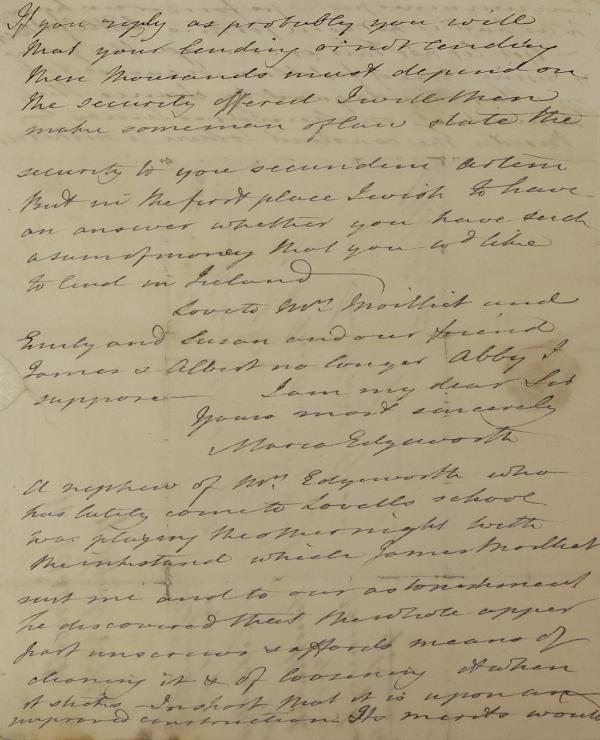 If you reply as probably you will
that your lending or not lending
these thousands must depend on
the security offered I will then
make some man of law state the
security to you secundem artem
But in the first place I wish to have
an answer whether you have such
a sum of money that you wd like
to lend in Ireland
Love to Mrs. Moilliet and
Emily and Susan and our friend
James & Albert no longer Abby I
suppose — I am my dear Sir
Yours most sincerely
Maria Edgeworth
A nephew of Mrs. Edgeworth who
has lately come to Lovells school
was playing the other night with
the inkstand which James Moilliet
sent me and to our astonishment
he discovered that the whole upper
part unscrews & affords means of
cleaning it & of loosening it when
it sticks – In short that it is upon an
improved construction. Its merits would